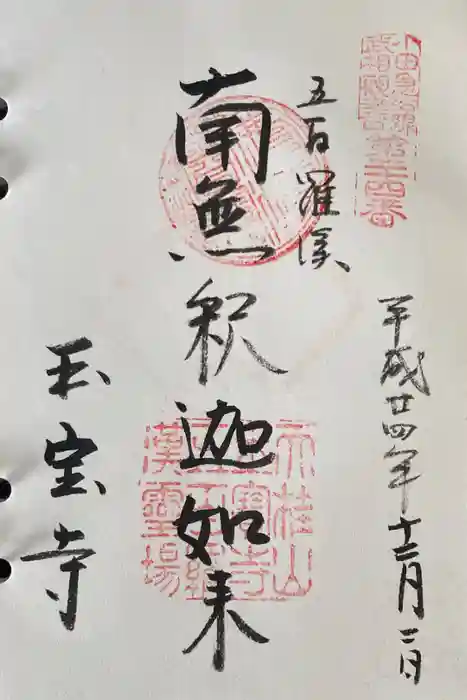 平成廿四年十二月二日
五百羅漢
南無釈迦如来
玉宝寺
天桂山
玉寳寺
五百羅
漢靈場